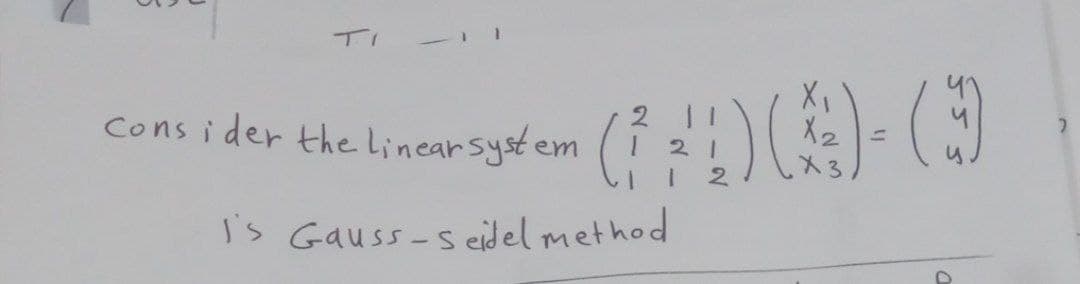 Consider the linear system (2 1 1 / 1 2 1 / 1 1 2) (X1 / X2 / X3) = (4 / 4 / 4)
1's Gauss-seidel method